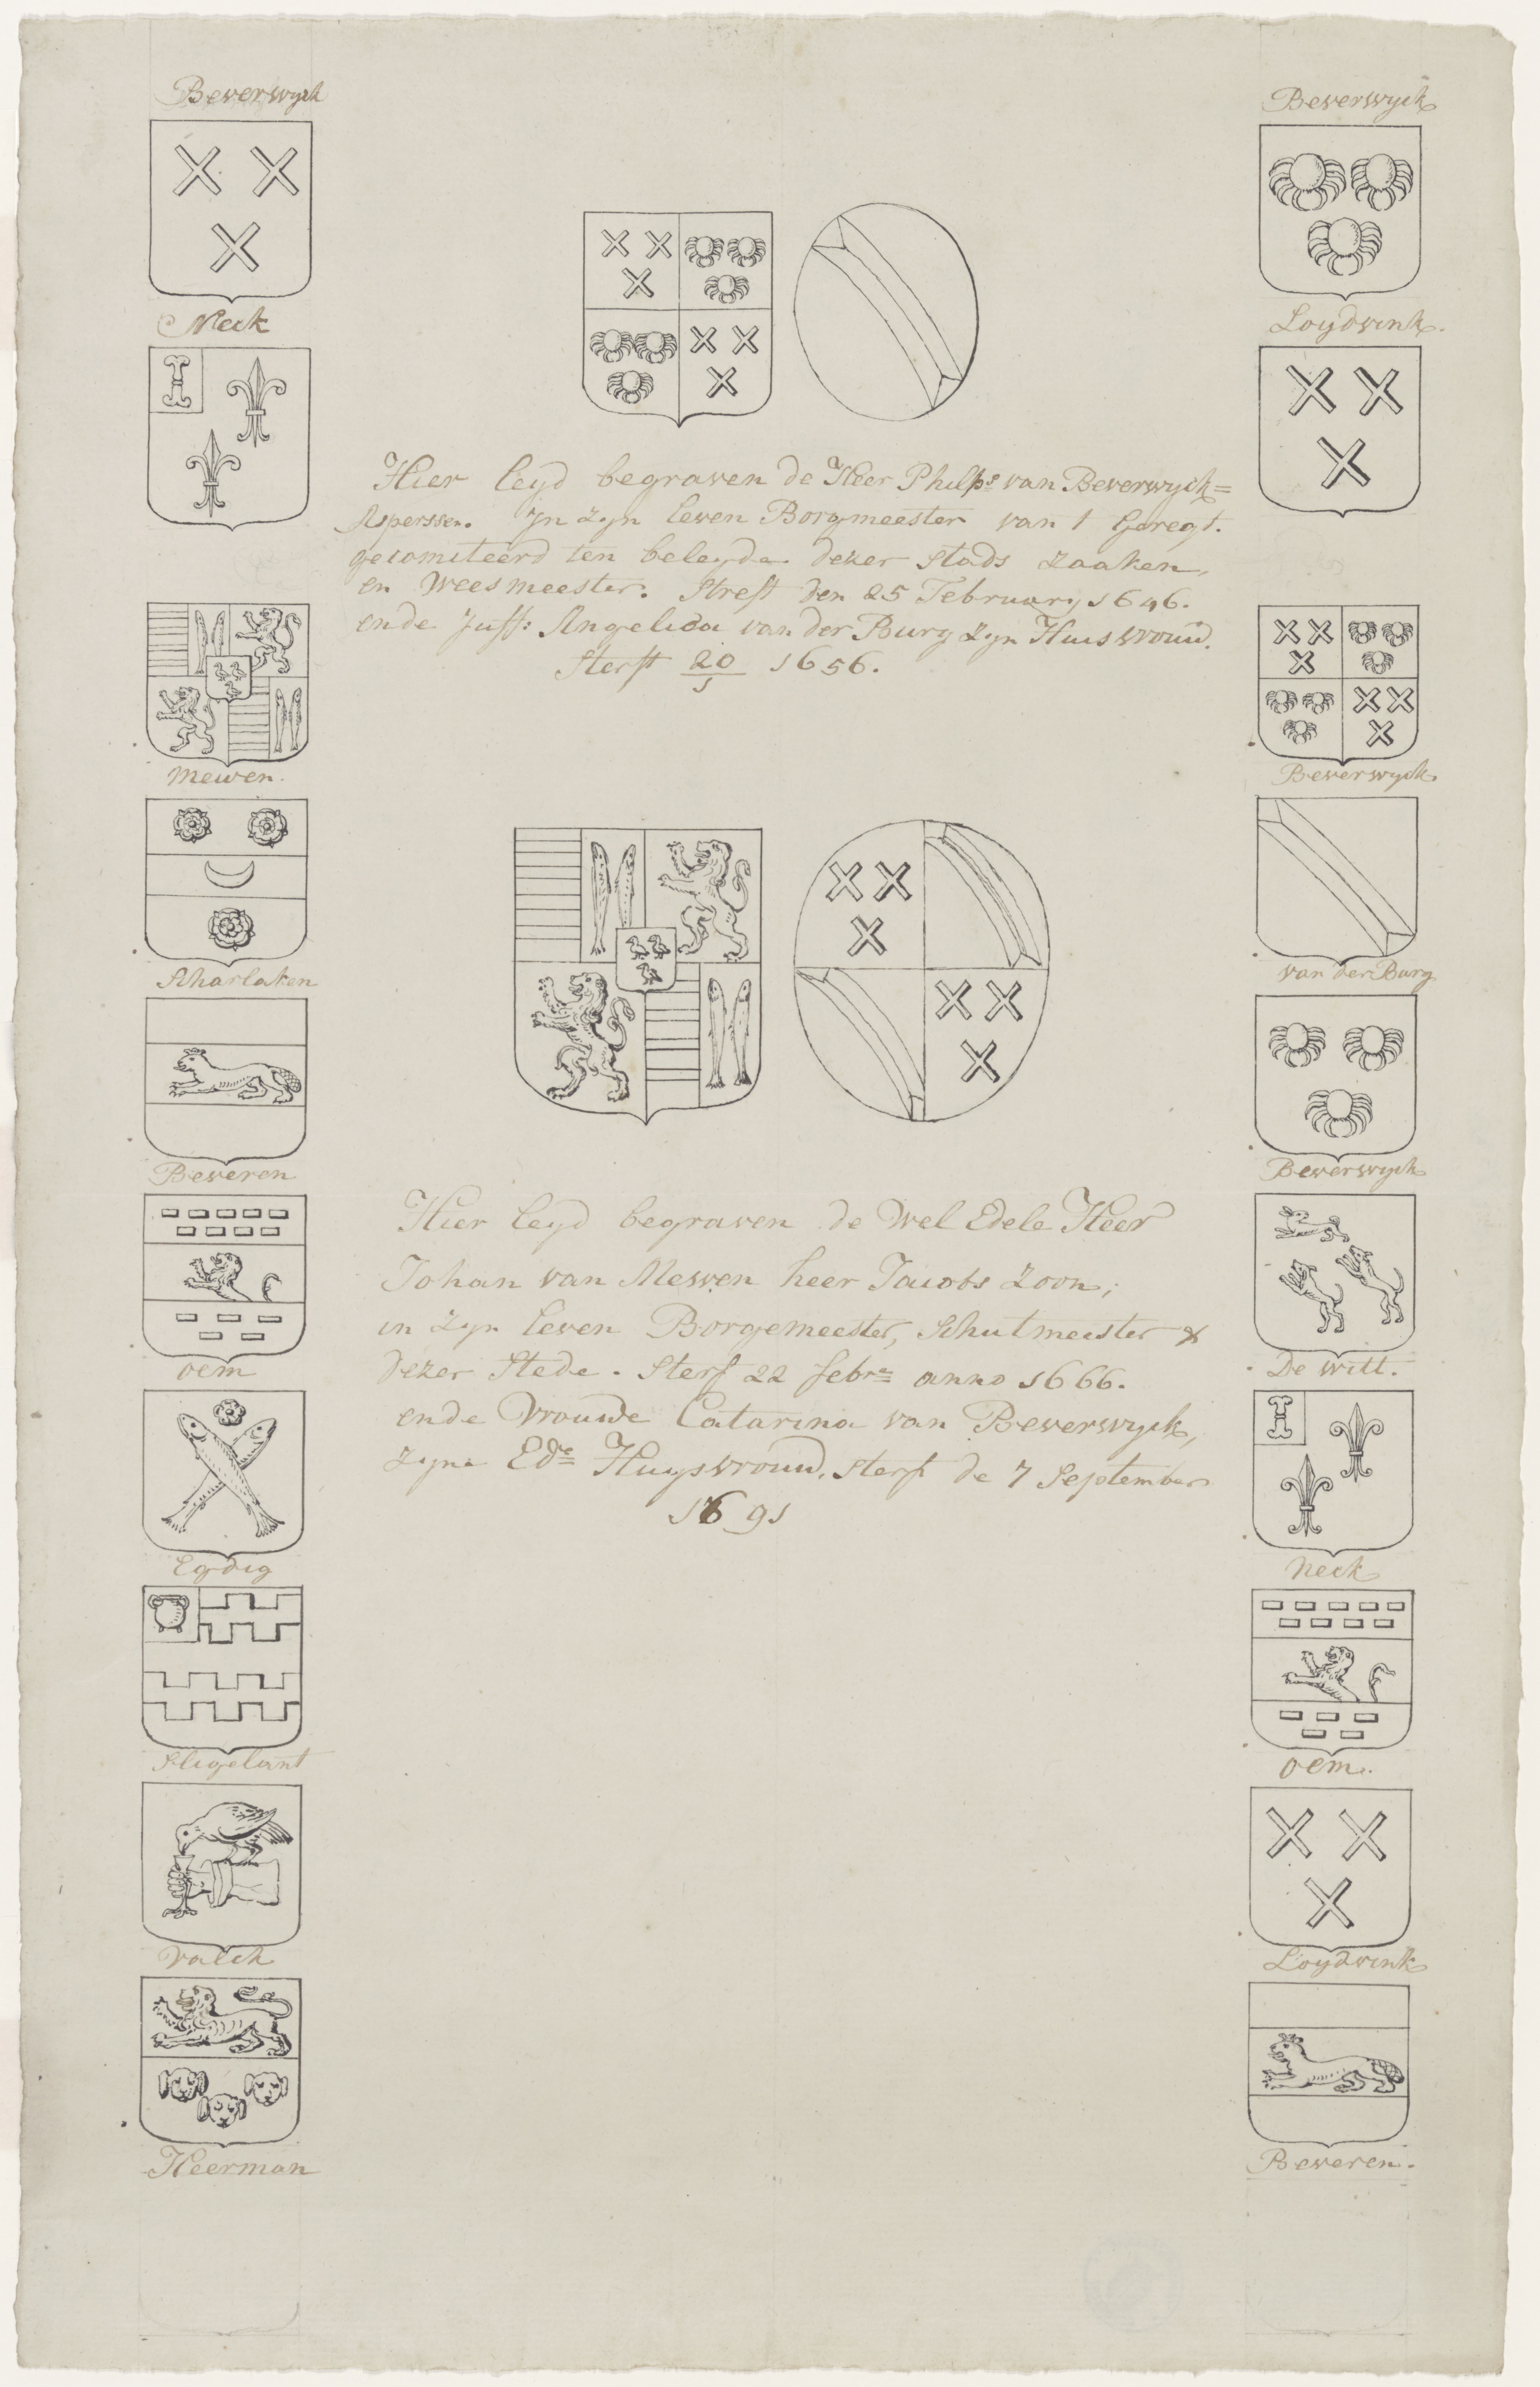 Beverwyck
Neck
Beverwyck
Loydvink.
Hier leyd begraven de Heer Philps van Beverwyck=
Asperssen. Jn Zyn leven Borgmeester van 1 Geregt.
gecomiteerd ten beleyde dezer Stads Zaaken,
en Weesmeester. Streft den 25 February 1646.
ende Juff: Angelica van der Burg Zyn Huisvrouw.
Sterft 20/1 1656.
Hier leyd begraven de Wel Edele Heer
Johan van Mewen heer Jacobs Zoon;
in Zyn leven Borgemeester, Schutmeester &
dezer Stede. Sterf 22 febre anno 1666.
ende Vrouwe Catarina van Beverwyck,
Zyne Ede Huysvrouw. Sterft de 7 September
1691
Mewen.
Scharlaken
Beveren
oem
Egdig
Sligelant
Valck
Heerman
Beverwyck
van der Burg
Beverwyck
De Witt.
Neck
oem.
Loydvink
Beveren.